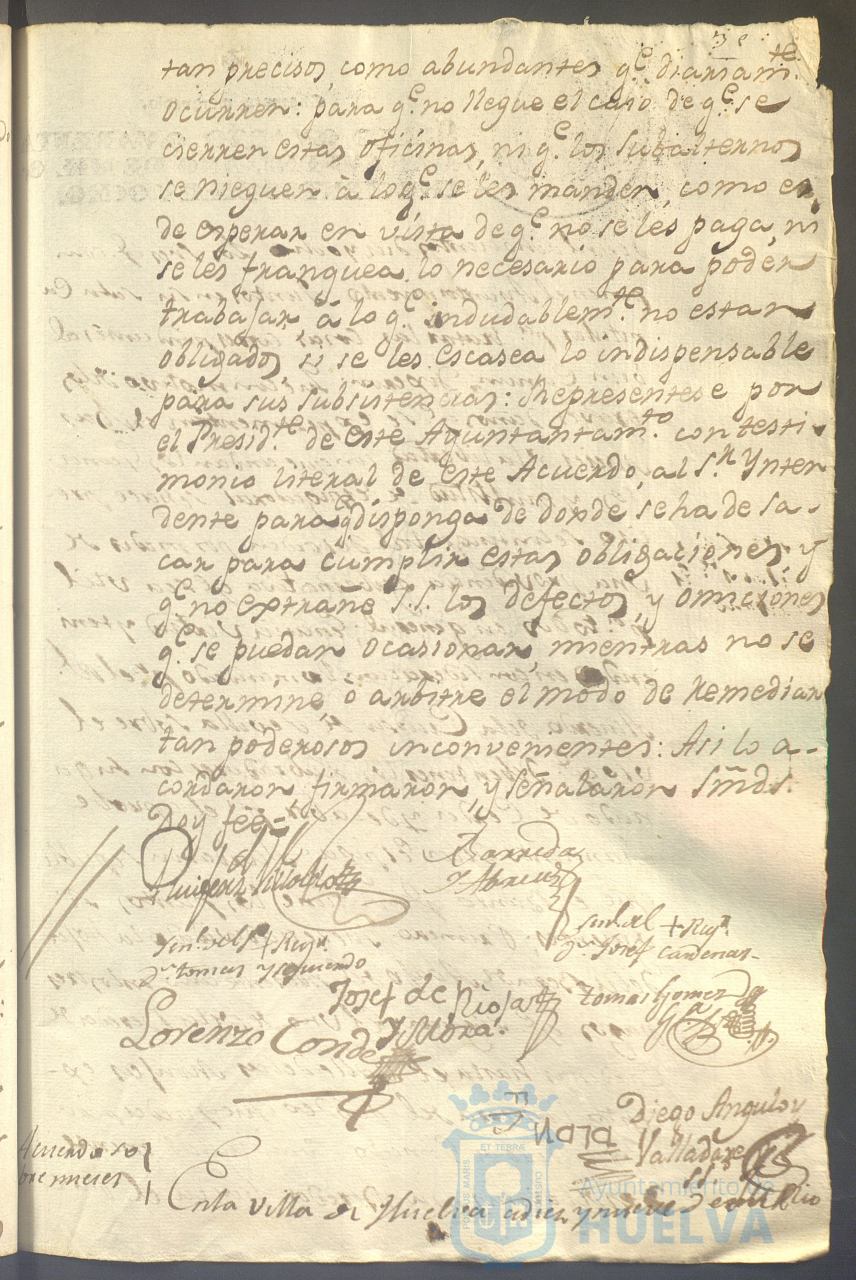 tan precisos, como abundantes q.e diariam.te
ocurren: para q.e no llegue el caso de q.e se
cierren estas oficinas, ni q.e los subalternos
se nieguen â lo q.e se les manden, como es
de esperar en vista de q.e no se les paga, ni
se les franquea lo necesario para poder
trabajar, â lo q.e indudablem.te no estan
obligados si se les escasea lo indispensable
para sus subsistencias: Representese por
el Presid.te de este Ayuntantam.to con testi-
monio literal de este Acuerdo, al S.r Ynten
dente para q.e disponga de donde se ha de sa-
car para cumplir estas obligaciones, y
q.e no extrañe S.S. los defectos, y omiciones
q.e se puedan ocasionar, mientras no se
determine, o arbitre el modo de remediar
tan poderosos inconvenientes: Asi lo a-
cordaron firmaron, y señalaron Smds.
Doy fee=
Barreda
y Abreu
Señ.l del S.r + Regi.r
d.n tomas yzquierdo
Señ.l del + Regi.r
d.n Josef Cardenas-
Josef de Rioja
y Mora
tomas Gomez
Lorenzo Conde
Diego Angulo y
Valladares
Acuerdo so
bre nieves
En la villa de Huelva a diez y nueve de Julio
PORTUS MARIS ET TERRÆ CUSTODIA
Ayuntamiento de
HUELVA